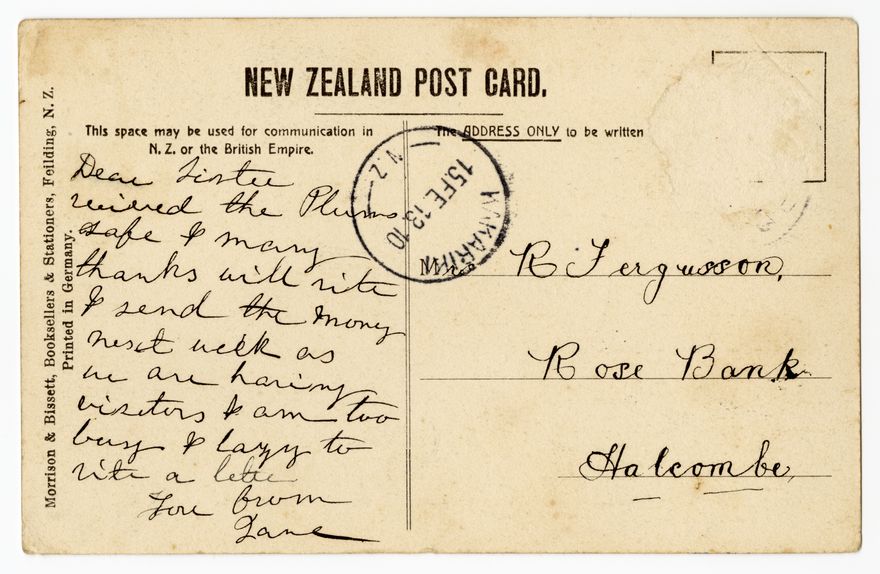 NEW ZEALAND POST CARD.
This space may be used for communication in
N. Z. or the British Empire.
The ADDRESS ONLY to be written
Morrison & Bissett, Booksellers & Stationers, Feilding, N. Z.
Printed in Germany.
Dear Sister
recieved the Plums
safe & many
thanks will rite
& send the money
next week as
we are having
visitors & am too
busy & lazy to
rite a letter
Love from
Jane
N.Z.
15 FE 13 10
Mrs R Fergusson,
Rose Bank
Halcombe,